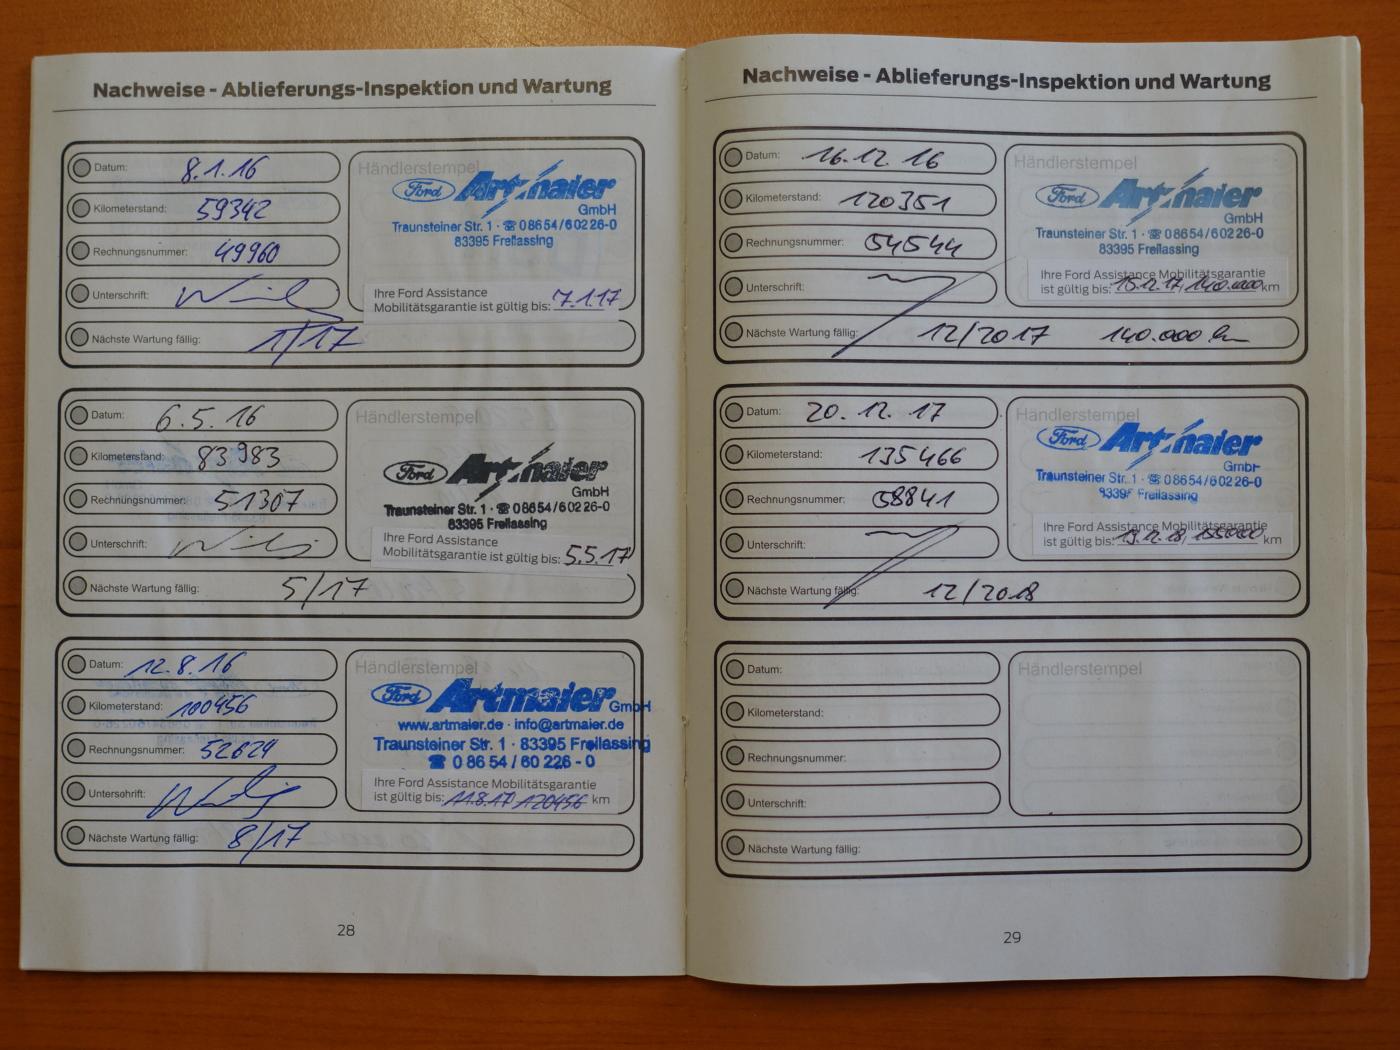 Nachweise - Ablieferungs-Inspektion und Wartung
Datum: 8.1.16
Kilometerstand: 59342
Rechnungsnummer: 49960
Unterschrift:
Nächste Wartung fällig: 1/17
Händlerstempel
Ford Artmaier
GmbH
Traunsteiner Str. 1 · ☎ 08654/60226-0
83395 Freilassing
Ihre Ford Assistance
Mobilitätsgarantie ist gültig bis: 7.1.17
Datum: 6.5.16
Kilometerstand: 83983
Rechnungsnummer: 51307
Unterschrift:
Nächste Wartung fällig: 5/17
Händlerstempel
Ford Artmaier
GmbH
Traunsteiner Str. 1 · ☎ 08654/60226-0
83395 Freilassing
Ihre Ford Assistance
Mobilitätsgarantie ist gültig bis: 5.5.17
Datum: 12.8.16
Kilometerstand: 100456
Rechnungsnummer: 52629
Unterschrift:
Nächste Wartung fällig: 8/17
Händlerstempel
Ford Artmaier GmbH
www.artmaier.de · info@artmaier.de
Traunsteiner Str. 1 · 83395 Freilassing
☎ 0 86 54 / 60 226 - 0
Ihre Ford Assistance Mobilitätsgarantie
ist gültig bis: 11.8.17 120456 km
28
Nachweise - Ablieferungs-Inspektion und Wartung
Datum: 16.12.16
Kilometerstand: 120351
Rechnungsnummer: 54544
Unterschrift:
Nächste Wartung fällig: 12/2017 140.000 km
Händlerstempel
Ford Artmaier
GmbH
Traunsteiner Str. 1 · ☎ 08654/60226-0
83395 Freilassing
Ihre Ford Assistance Mobilitätsgarantie
ist gültig bis: 15.12.17/140.000 km
Datum: 20.12.17
Kilometerstand: 135466
Rechnungsnummer: 58841
Unterschrift:
Nächste Wartung fällig: 12/2018
Händlerstempel
Ford Artmaier
GmbH
Traunsteiner Str. 1 · ☎ 08654/60226-0
83395 Freilassing
Ihre Ford Assistance Mobilitätsgarantie
ist gültig bis: 19.12.18/155000 km
Datum:
Kilometerstand:
Rechnungsnummer:
Unterschrift:
Nächste Wartung fällig:
Händlerstempel
29